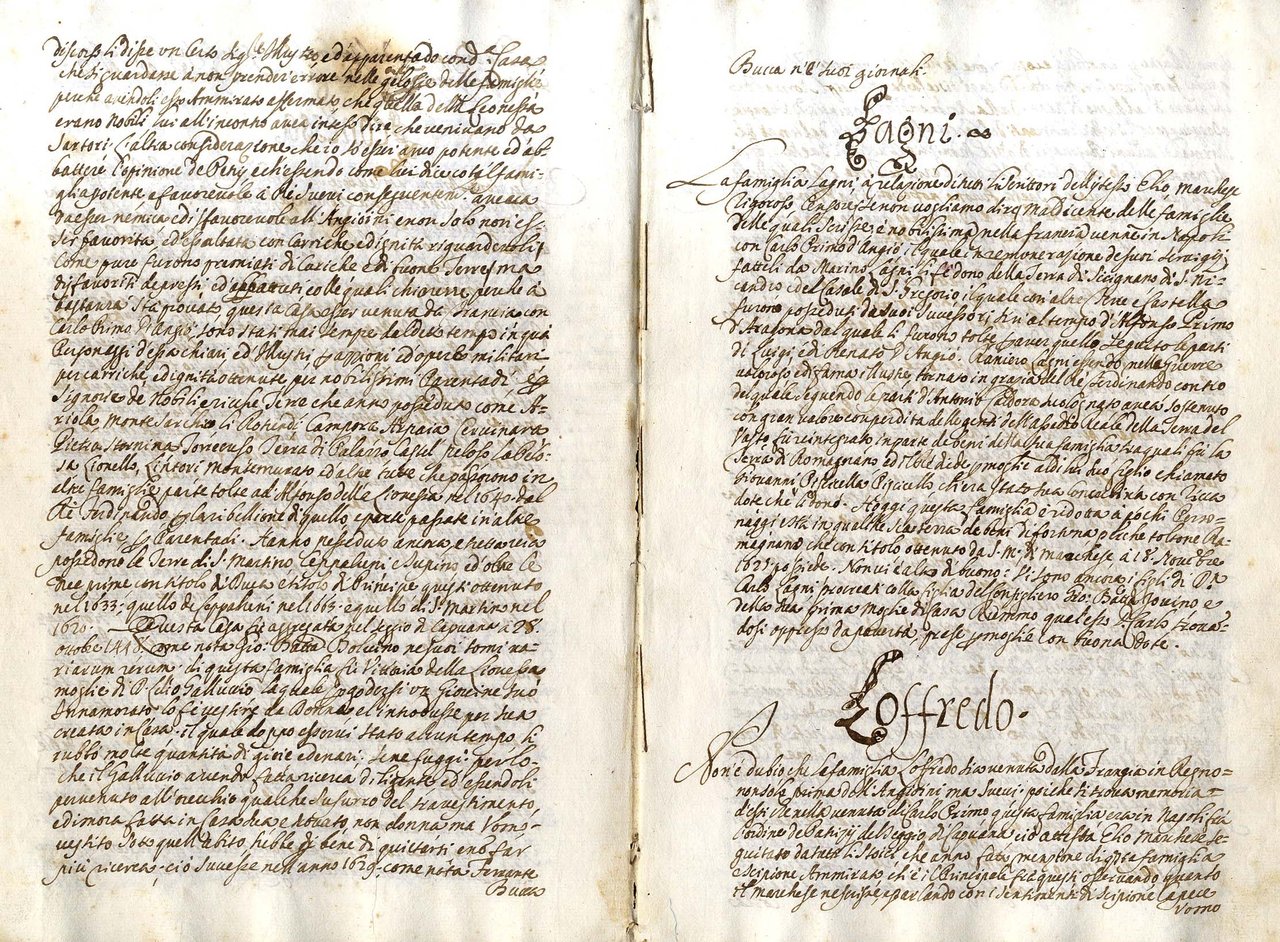 discorsi li disse un certo
che si guardasse à non prender errore nelle gelosie delle famiglie
perche avendoli esso Ammirato affermato che quella della Leonessa
erano Nobili lui all'incontro avea inteso dire che venivano da
Sartori L'altra consideratione che
l'opinione de ed essendo come lui dice cotal fami-
glia potente e favorevole a Rè Suevi conseguentem.te aveva
da esser nemica e disfavorevole all'Angioini e non solo non es-
ser favorita ed esaltata con carriche e dignità riguardevoli
Come pure furono premiati di Cariche e di buone Terre, ma
disfavoriti depressi ed colle quali chiuerre perche à
bastanza stà provato questa Casa esser venuta da Francia con
Carlo Primo d'Angiò, sono stati mai sempre da detto tempo in quà
Personaggi d'essa chiari ed Illustri p attioni ed opere militari
per carriche, e dignità ottenute, per nobilissimi Parentadi, e p
Signorie de Nobili e ricche Terre che anno posseduto come A-
riola, monte Sarchio li Rotondi Campora Arpaia Cervinara
Pietra Stornina Torrecuso Terra di Palazzo Castel Peloso la Pelo-
sa Lionello, Lintori montemurato ed altre tutte che passorono in
altre famiglie parte tolte ad Alfonso della Lionessa nel 1640 dal
Rè Ferdinando p la ribellione di quello e parte passate in altre
famiglie p Parentadi. Hanno posseduto ancora e tuttavia
possedono le Terre di S. Martino, Ceppaloni e Supino ed oltre le
due prime con titolo di Duca e titolo di Principe questi ottenuto
nel 1633: quello di Ceppaloni nel 1663: e quello di S. Martino nel
1630. Questa Casa fù aggregata nel Seggio di Capuana à 28.
ottobre 1448 come nota Gio: Batta Bolvino ne suoi tomi va-
riarum rerum: di questa famiglia fù Vittoria della Lionessa
moglie di D. Lelio Galluccio la quale godersi un Giovine suo
Innamorato lo fè vestire da Donna, e l'introdusse per sua
creata in Casa. il quale doppo esservi stato alcun tempo li
rubbò molte quantità di gioie e denari, e se ne fuggì: per lo-
che il Galluccio avendo fatta ricerca diligente, ed essendoli
pervenuto all'orecchio qualche susurro del travestimento,
e dimora fatta in Casa sua e trovato non donna ma Uomo
vestito sotto quell'abito, hebbe di bene di quietarsi en far
più ricerca: ciò successe nell'anno 1629. come nota Ferrante
Bucca
Bucca n'è suoi giornali.
Lagni.
La famiglia Lagni, à relatione di tutti li Scrittori dell'istesso Elio marchese
rigoroso Censore se non vogliamo dirlo maldicente delle famiglie
delle quali Scrisse, è nobilissima nella francia venne in Napoli
con Carlo Primo d'Angiò, il quale in remuneratione de suoi servigij
fatteli da Marino Lagni li fè dono della Terra di Sicignano di S. Ni-
candro e del Casale di S. Gregorio, il quale con altre Terre e Castella
furono posseduti da suoi successori, fin' al tempo d'Alfonso Primo
d'Aragona dal quale li furono tolte p aver quello seguito le parti
di Luigi, e di Renato d'Angiò. Raniero Lagni essendo nelle Guerre
valoroso ed fama illustre, tornato in gratia del Rè Ferdinando contro
del quale, seguendo à parti d'Antonio Caldora, avea sostenuto
con gran valore con perdita delle genti dell'assedio Reale della Terra del
Vasto fù reintegrato in parte de beni della sua famiglia tra quali fù la
Terra di Romagnano ed Elbe di sua moglie al di lui figlio chiamato
Giovanni Piscicella Piscicello ch'era stato sua Concubina con ricca
dote che li donò. Hoggi questa famiglia è ridotta a pochi Perso-
naggi e stà in qualche scarsezza de beni di fortuna p li che toltone Ra-
megnano che con titolo ottenuto da S. M. di marchese à 18 Novembre
1625 possiede. Non vi è altro di buono: Vi sono ancora i figli di D.
Carlo Lagni procreati colla figlia del Consigliero Gio: Batta Jovino e
della sua prima moglie di Casa Riemmo quale esso D. Carlo trovan-
dosi oppresso da povertà prese p moglie con buona dote.
Loffredo.
Non è dubio che la famiglia Loffredo sia venuta dalla Francia in Regno
non solo prima dell'Angioini ma Suevi poiche si trova memoria
d'essi che nella venuta di Carlo Primo questa famiglia era in Napoli fra
l'ordine de Patrizij del Seggio di Capuana, ciò attesta Elio Marchese se-
guitato da tutti li Storici che anno fatta mentione di questa famiglia
Scipione Ammirato ch'è il Principale fra questi osservando quanto
il marchese ne scrisse e parlando con i sentimenti di Scipione Capece
Uomo